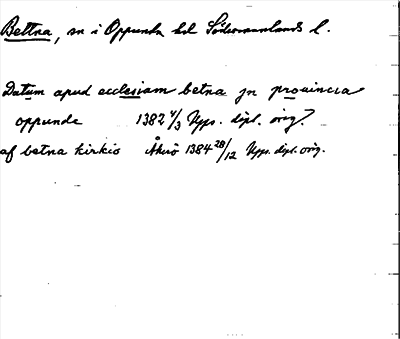 Bettna, sn i Oppunda hd Södermanlands l.
Datum apud ecclesiam betna jn prouincia
oppunde 1382 4/3 Upps. dipl. orig.?
af betna kirkio Åkerö 1384 28/12 Upps. dipl. orig.